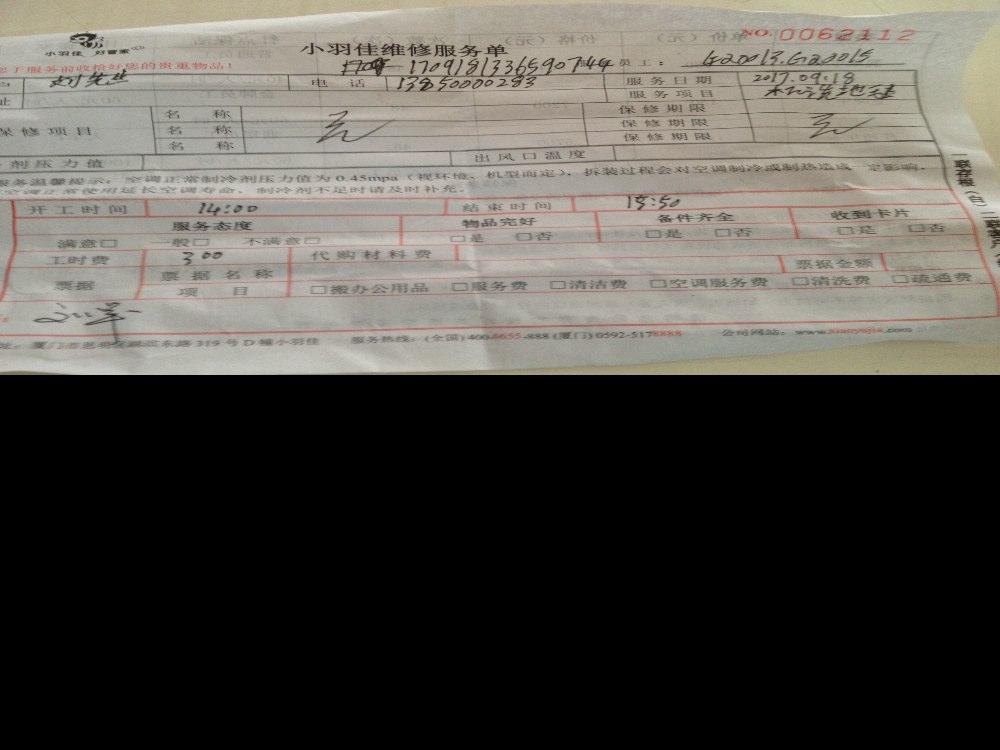 小羽佳 好管家
小羽佳维修服务单
NO. 0062112
了服务前收拾好您的贵重物品！
1709181336590744 员工： G20013.G20015
刘先生 电 话 13850000283 服务日期 2017.09.18
址 服务项目
保修项目 名 称 无 保修期限 无
名 称 保修期限
名 称 保修期限
剂压力值 出风口温度
服务温馨提示：空调正常制冷剂压力值为 0.45mpa（视环境、机型而定），拆装过程会对空调制冷或制热造成一定影响，
空调正常使用延长空调寿命，制冷剂不足时请及时补充。
开工时间 14:00 结束时间 15:50
服务态度 物品完好 备件齐全 收到卡片
满意□ 一般□ 不满意□ □是 □否 □是 □否 □是 □否
工时费 300 代购材料费
票据 票据名称 票据金额
项 目 □搬办公用品 □服务费 □清洁费 □空调服务费 □清洗费 □疏通费
东路 319 号 D 幢小羽佳 服务热线：(全国) 400-6655-888 (厦门) 0592-5178888 公司网站：www.xiaoyujia.com
一联存根（白）